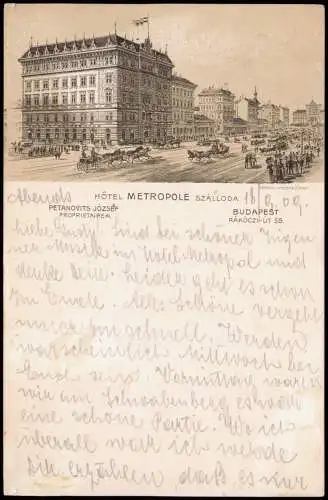 HÔTEL METROPOLE SZÁLLODA
PETANOVITS JÓZSEF
PROPRIETAIRE
BUDAPEST
RÁKÓCZI-ÚT 58.
Abends
09.
Sind bei schöner Zigeu
ner Musik im Hotel Metropol und
denke Dein. Leider geht es schon
zu Ende. Alles Schöne vergeht
nur zu schnell. Werden
warscheinlich Mittwoch bei
Euch sein. Vormittag waren
wir am Schwabenberg, es war
eine schöne Partie. Wo ich
überall war ich werde
Dir erzählen daß es nur